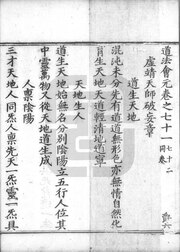 道法會元卷之七十一 七十二同卷
虛靖天師破妄章
道生天地
混沌未分先有道道無形色亦無情自然化
肖生天地天道輕清地道寧
天地生人
道生天地始無名分別陰陽立五行人位其
中靈萬物又從天地道生成
人稟陰陽
三才天地人同炁人稟先天一炁靈一炁具